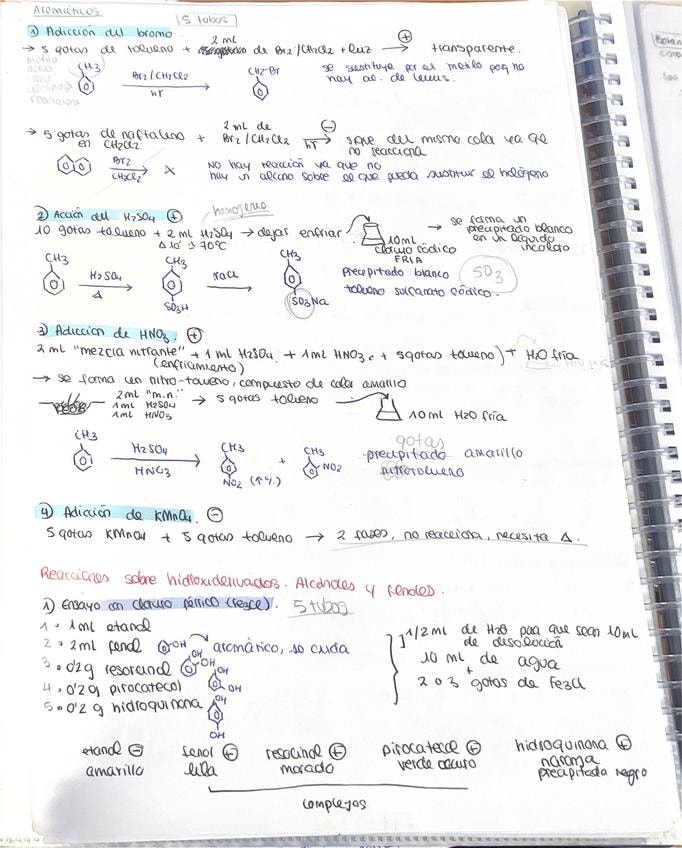 Aromáticos
5 tubos
1) Adicción del bromo
→ 5 gotas de tolueno + 2 mL de Br2/CH2Cl2 + luz (+) → transparente.
metilo
CH3 Br2/CH2Cl2 hν → CH2-Br
se sustituye por el metilo porq no
hay ac. de Lewis.
reacciona
→ 5 gotas de naftaleno + 2 mL de (-)
en CH2Cl2 Br2/CH2Cl2 hν → sigue del mismo color ya qe
no reacciona
Br2 CH2Cl2 → X
No hay reacción ya que no
hay un alcano sobre el que pueda sustituir el halógeno
2) Acción del H2SO4 (+) homogeneo
10 gotas tolueno + 2 mL H2SO4 → dejar enfriar
Δ 10' 70ºC
10 mL
cloruro sódico
FRIA
→ se forma un
precipitado blanco
en un líquido
incoloro
CH3 H2SO4 Δ → CH3 SO3H NaCl → CH3 SO3Na
precipitado blanco SO3
tolueno sulfonato sódico.
3) Adiccion de HNO3. (+)
2 mL "mezcla nitrante" + 1 mL H2SO4 + 1 mL HNO3 + 5 gotas tolueno) + H2O fría
(enfriamiento)
→ se forma un nitro-tolueno, compuesto de color amarillo
2 mL "m.n." → 5 gotas tolueno 10 mL H2O fría
1 mL H2SO4
1 mL HNO3
CH3 H2SO4 HNO3 → CH3 NO2 (↑%) + CH3 NO2
gotas
precipitado amarillo
nitrotolueno
4) Adición de KMnO4. (-)
5 gotas KMnO4 + 5 gotas tolueno → 2 fases, no reacciona, necesita Δ.
Reacciones sobre hidroxiderivados. Alcoholes y fenoles.
1) Ensayo con cloruro férrico (FeCl3). 5 tubos
1. 1 mL etanol
2. 2 mL fenol OH → aromático, se cuida
3. 0'2 g resorcinol OH OH
4. 0'2 g pirocatecol OH OH
5. 0'2 g hidroquinona OH OH
1/2 mL de H2O para que sean 10 mL
de disolución
10 mL de agua
+
2 o 3 gotas de FeCl
etanol (-) fenol (+) resorcinol (+) pirocatecol (+) hidroquinona (+)
amarillo lila morado verde oscuro naranja
precipitado negro
complejos